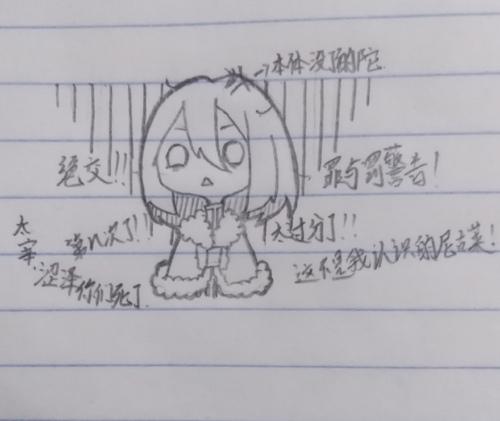 →本体没了的陀
绝交!!
罪与罚警告!
第N次了!!!
太过分了!!
太宰、涩泽
你们死了
这不是我认识的尼古莱!